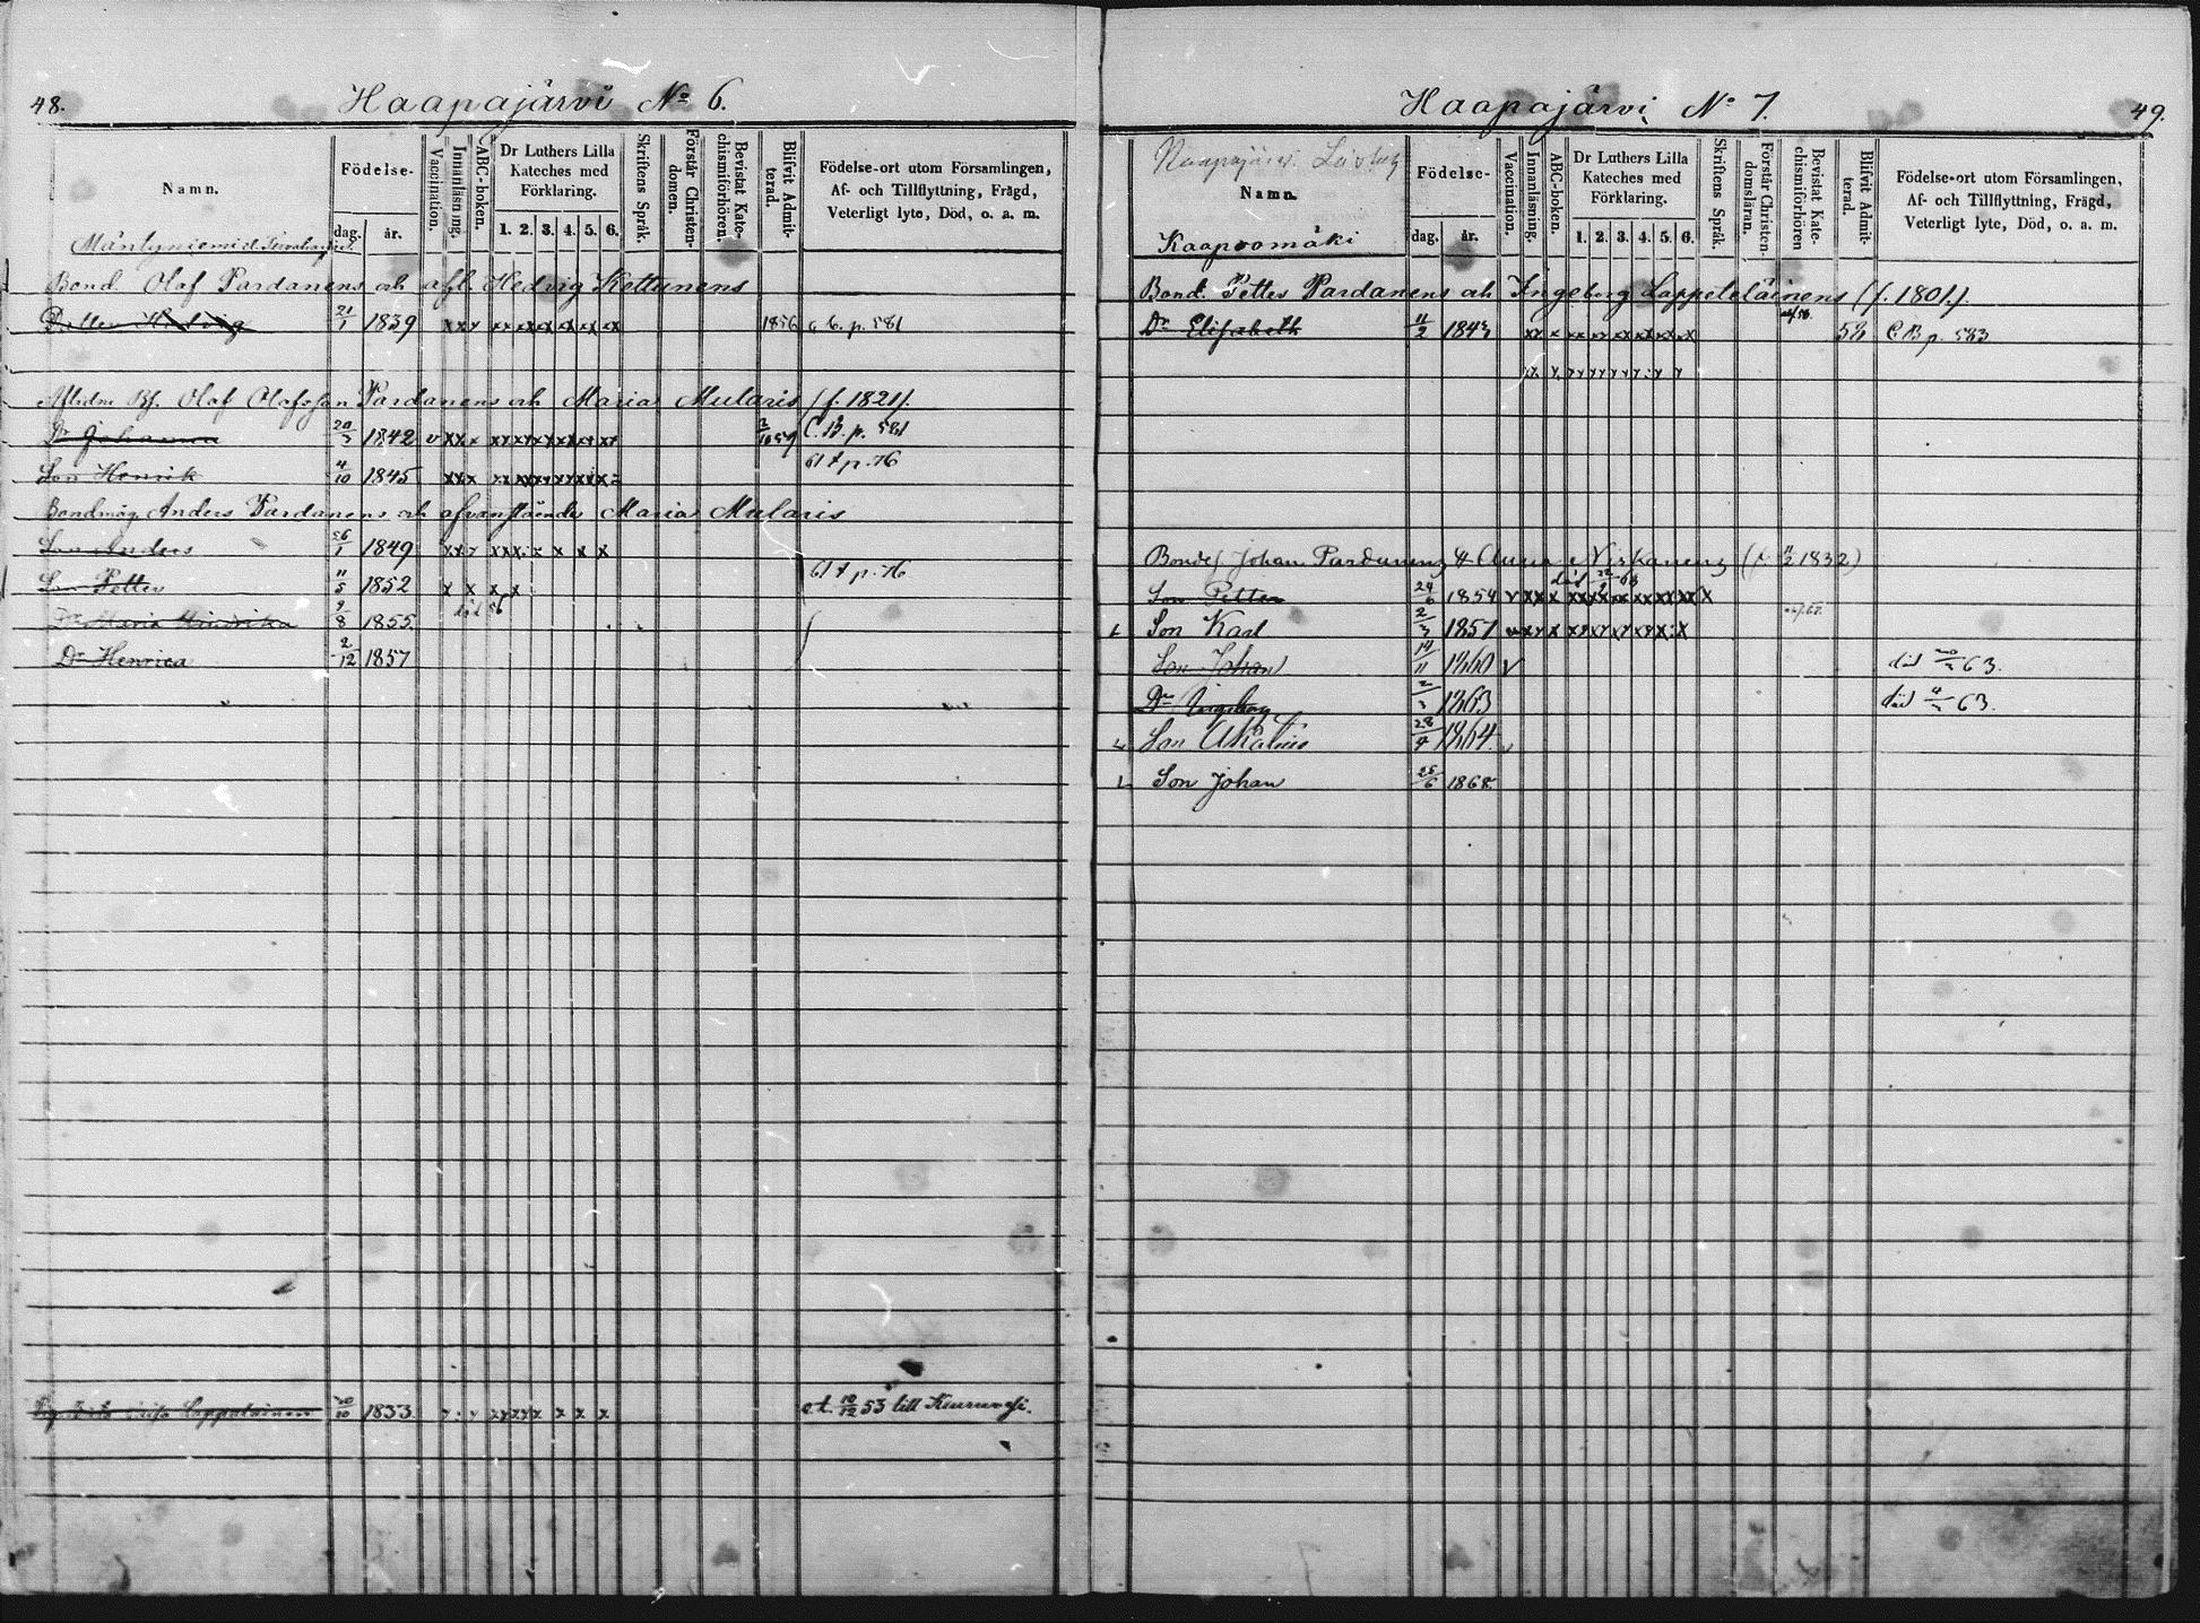 48.
Haapajärvi No 6.
Namn.
Födelse-
dag.
år.
Vaccination.
Innanläsning.
ABC-boken.
Dr Luthers Lilla Kateches med Förklaring.
1. 2. 3. 4. 5. 6.
Skriftens Språk.
Förstår Christendomen.
Bevistat Katechismiförhören.
Blifvit Admitterad.
Födelse-ort utom Församlingen,
Af- och Tillflyttning, Frägd,
Veterligt lyte, Död, o. a. m.
Mäntyniemi
Bond. Olaf Pardanens och afl. Hedvig Kettunens
Hedvig 21/1 1839 xxx xx xx xx xx xx xx 1856 C.B. p. 581
Olaf Olofsson Pardanens och Maria Mularis (f. 1821).
Dr Johanna 20/3 1842 v xx x xx xx xx xx xx xx C.B. p. 581
Son Henrik 4/10 1845 xx x xx xx xx xx xx x 61 + p. 76
Bondmåg Anders Pardanens och ofvanstående Maria Mularis
Son Anders 26/1 1849
Son Petter 11/5 1852 x x x x 61 + p. 76
Dr Maria Hindrika 9/8 1855 död 56
Dr Henrica 2/12 1857
Lappalainen 1833 x x x 53 till Kiuruvesi.
49.
Haapajärvi No 7.
Haapajärvi
Namn.
Kaapoomäki
Födelse-
dag.
år.
Vaccination.
Innanläsning.
ABC-boken.
Dr Luthers Lilla
Kateches med
Förklaring.
1. 2. 3. 4. 5. 6.
Skriftens Språk.
Förstår Christendomsläran.
Bevistat Katechismiförhören
Blifvit Admitterad.
Födelse-ort utom Församlingen,
Af- och Tillflyttning, Frägd,
Veterligt lyte, Död, o. a. m.
Bond. Petter Pardanens och Ingeborg Lappeteläinens (f. 1801.).
Dr Elisabeth 11/2 1843 xx x xx xx xx xx xx x 58 C.B p. 583
Bondes. Johan Pardanens & Anna Niskanens (f. 11/2 1832)
Son Petter 24/6 1854 v xx x xx xx xx xx xx xx x
Son Karl 2/3 1857
Son Johan 1860 v död 63.
Dr Ingeborg 1863 död 63.
Son 28/4 1864
Son Johan 25/6 1868